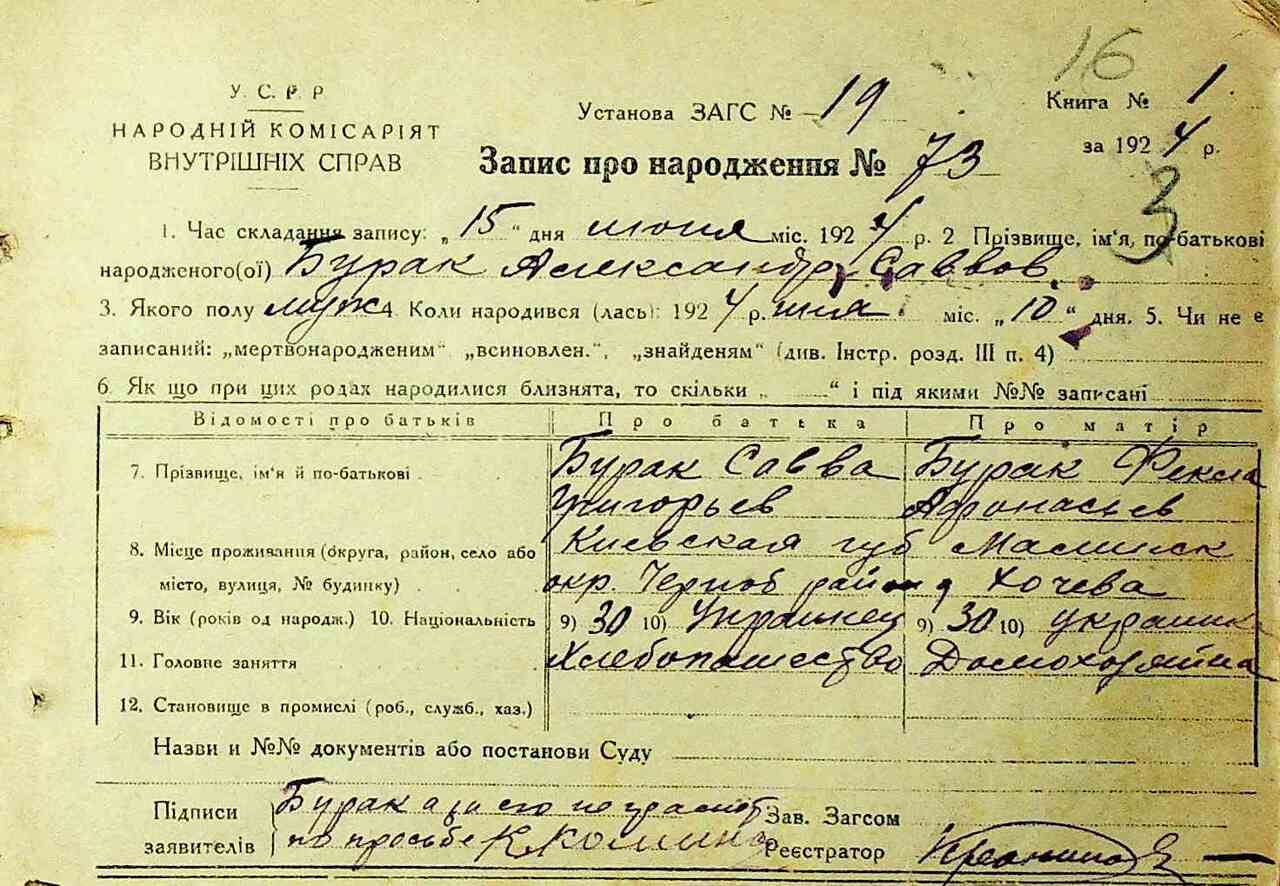 16
У. С. Р. Р
НАРОДНІЙ КОМІСАРІЯТ
ВНУТРІШНІХ СПРАВ
Установа ЗАГС № 19
Книга № 1
за 1924 р.
Запис про народження № 73
3
1. Час складання запису: „15“ дня июня міс. 1924 р. 2 Прізвище, ім'я, по-батькові
народженого(ої) Бурак Александр Саввов
3. Якого полу муж 4. Коли народився (лась): 1924 р. июня міс. „10“ дня. 5. Чи не є
записаний: „мертвонародженим“ „всиновлен.“, „знайденям“ (див. Інстр. розд. III п. 4)
6. Як що при цих родах народилися близнята, то скільки „ “ і під якими №№ записані
Відомості про батьків Про батька Про матір
7. Прізвище, ім'я й по-батькові Бурак Савва Бурак Фекла
Григорьев Афонасьев
8. Місце проживання (округа, район, село або Киевская губ Малинск
місто, вулиця, № будинку) окр. Черноб район д Хочева
9. Вік (років од народж.) 10. Національність 9) 30 10) Украинец 9) 30 10) украинк
11. Головне заняття Хлебопашество Домохозяйка
12. Становище в промислі (роб., служб., хаз.)
Назви и №№ документів або постанови Суду
Підписи Бурак а за его неграмот Зав. Загсом
заявителів по просьбе Реєстратор